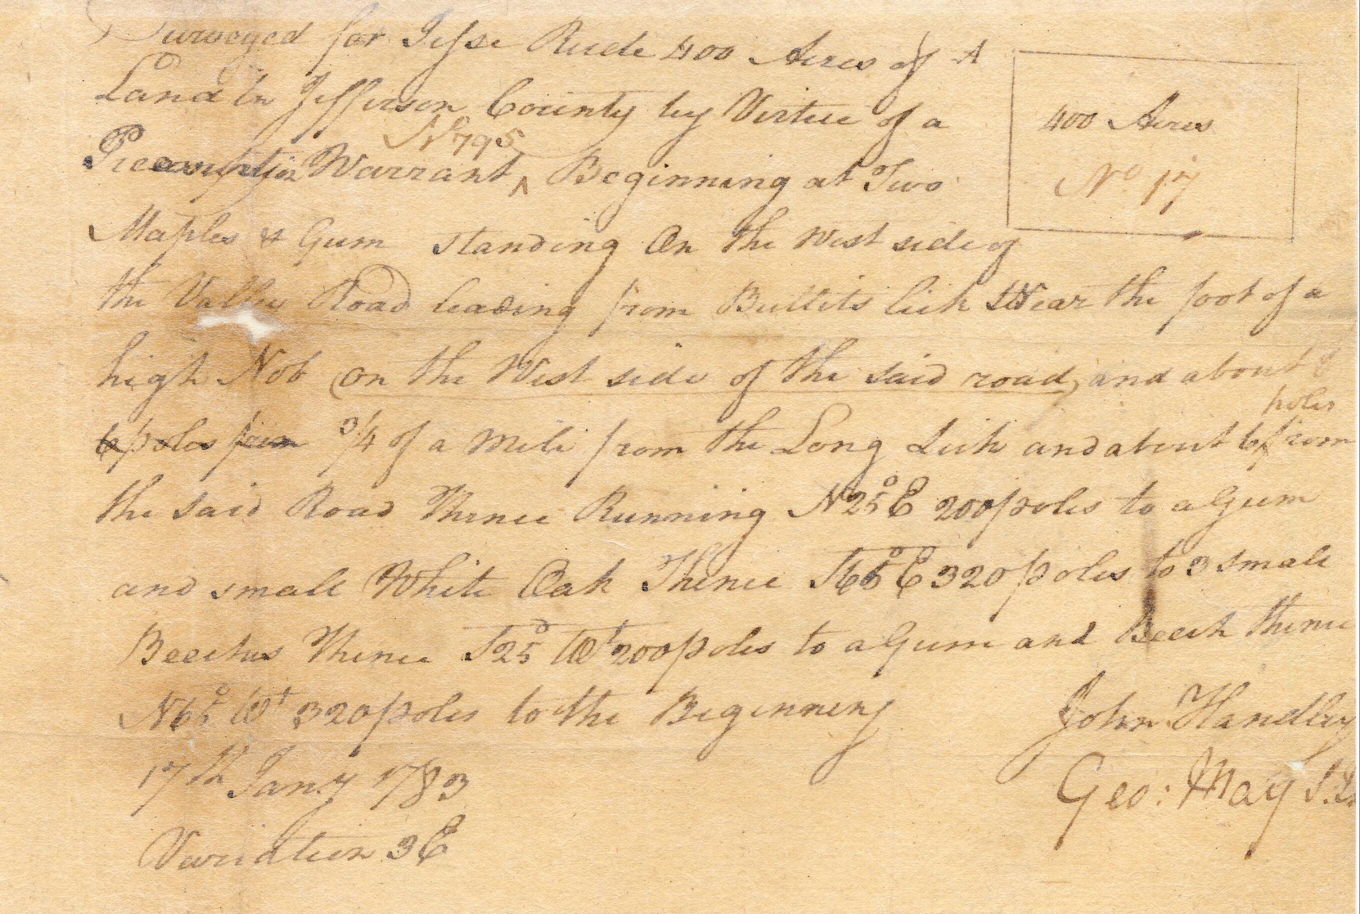 Surveyed for Jesse Rude 400 Acres of A
Land In Jefferson County by Virtue of a
No 795
Preemption Warrant ^ Beginning at Two
Maples & Gum standing On the West side of
the Valley Road leading from Bullits lick Near the foot of a
high Nob (on the West side of the said road) and about
poles
6 poles from 3/4 of a Mile from the Long Lick and about 6 ^ from
the said Road Thence Running N25°E 200 poles to a Gum
and small White Oak Thence S65°E 320 poles to 3 small
Beeches Thence S25° Wt 200 poles to a Gum and Beech thence
N65° Wt 320 poles to the Beginning
17th Jany 1783
Variation 3E
400 Acres
No 17
John Handley
Geo: May